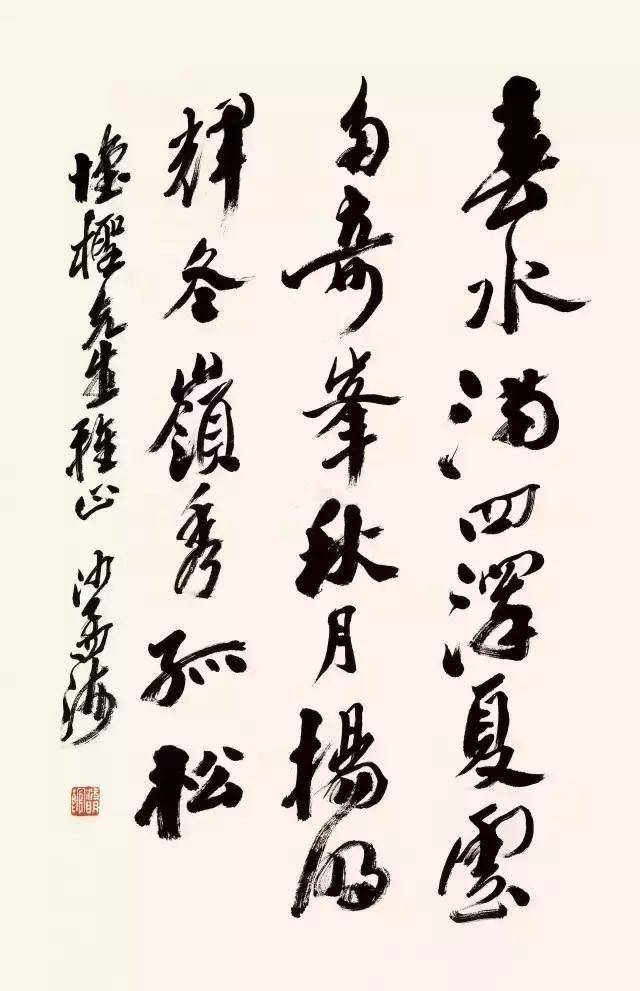 春水满四澤夏雲
多奇峯秋月揚明
輝冬嶺秀孤松
先生雅正 沙孟海